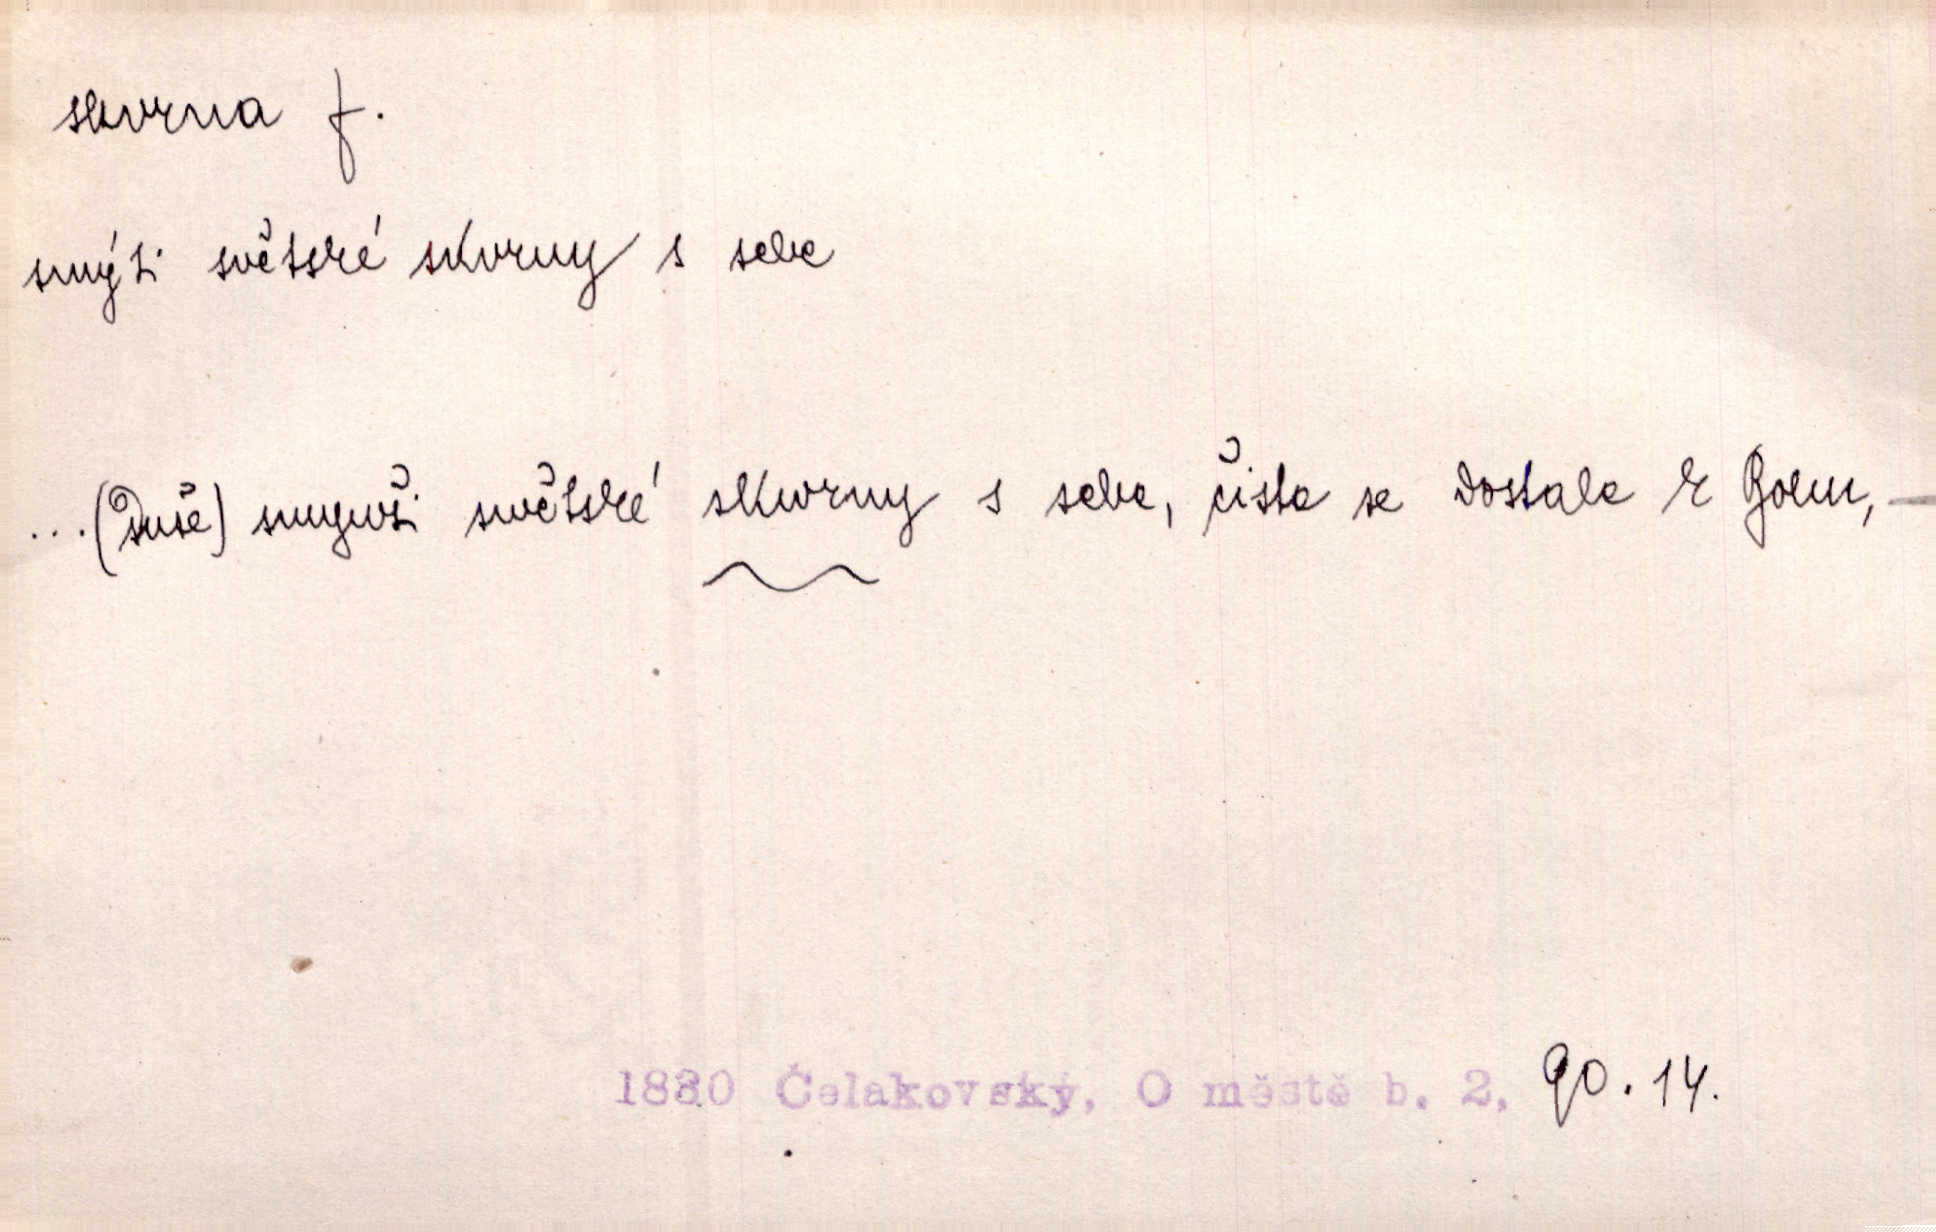 skvrna f.
smýti světské skvrny s sebe
...(Duše) smywši swětské skwrny s sebe, čista se dostala k Bohu, —
1830 Čelakovský, O městě b. 2, 90.14.